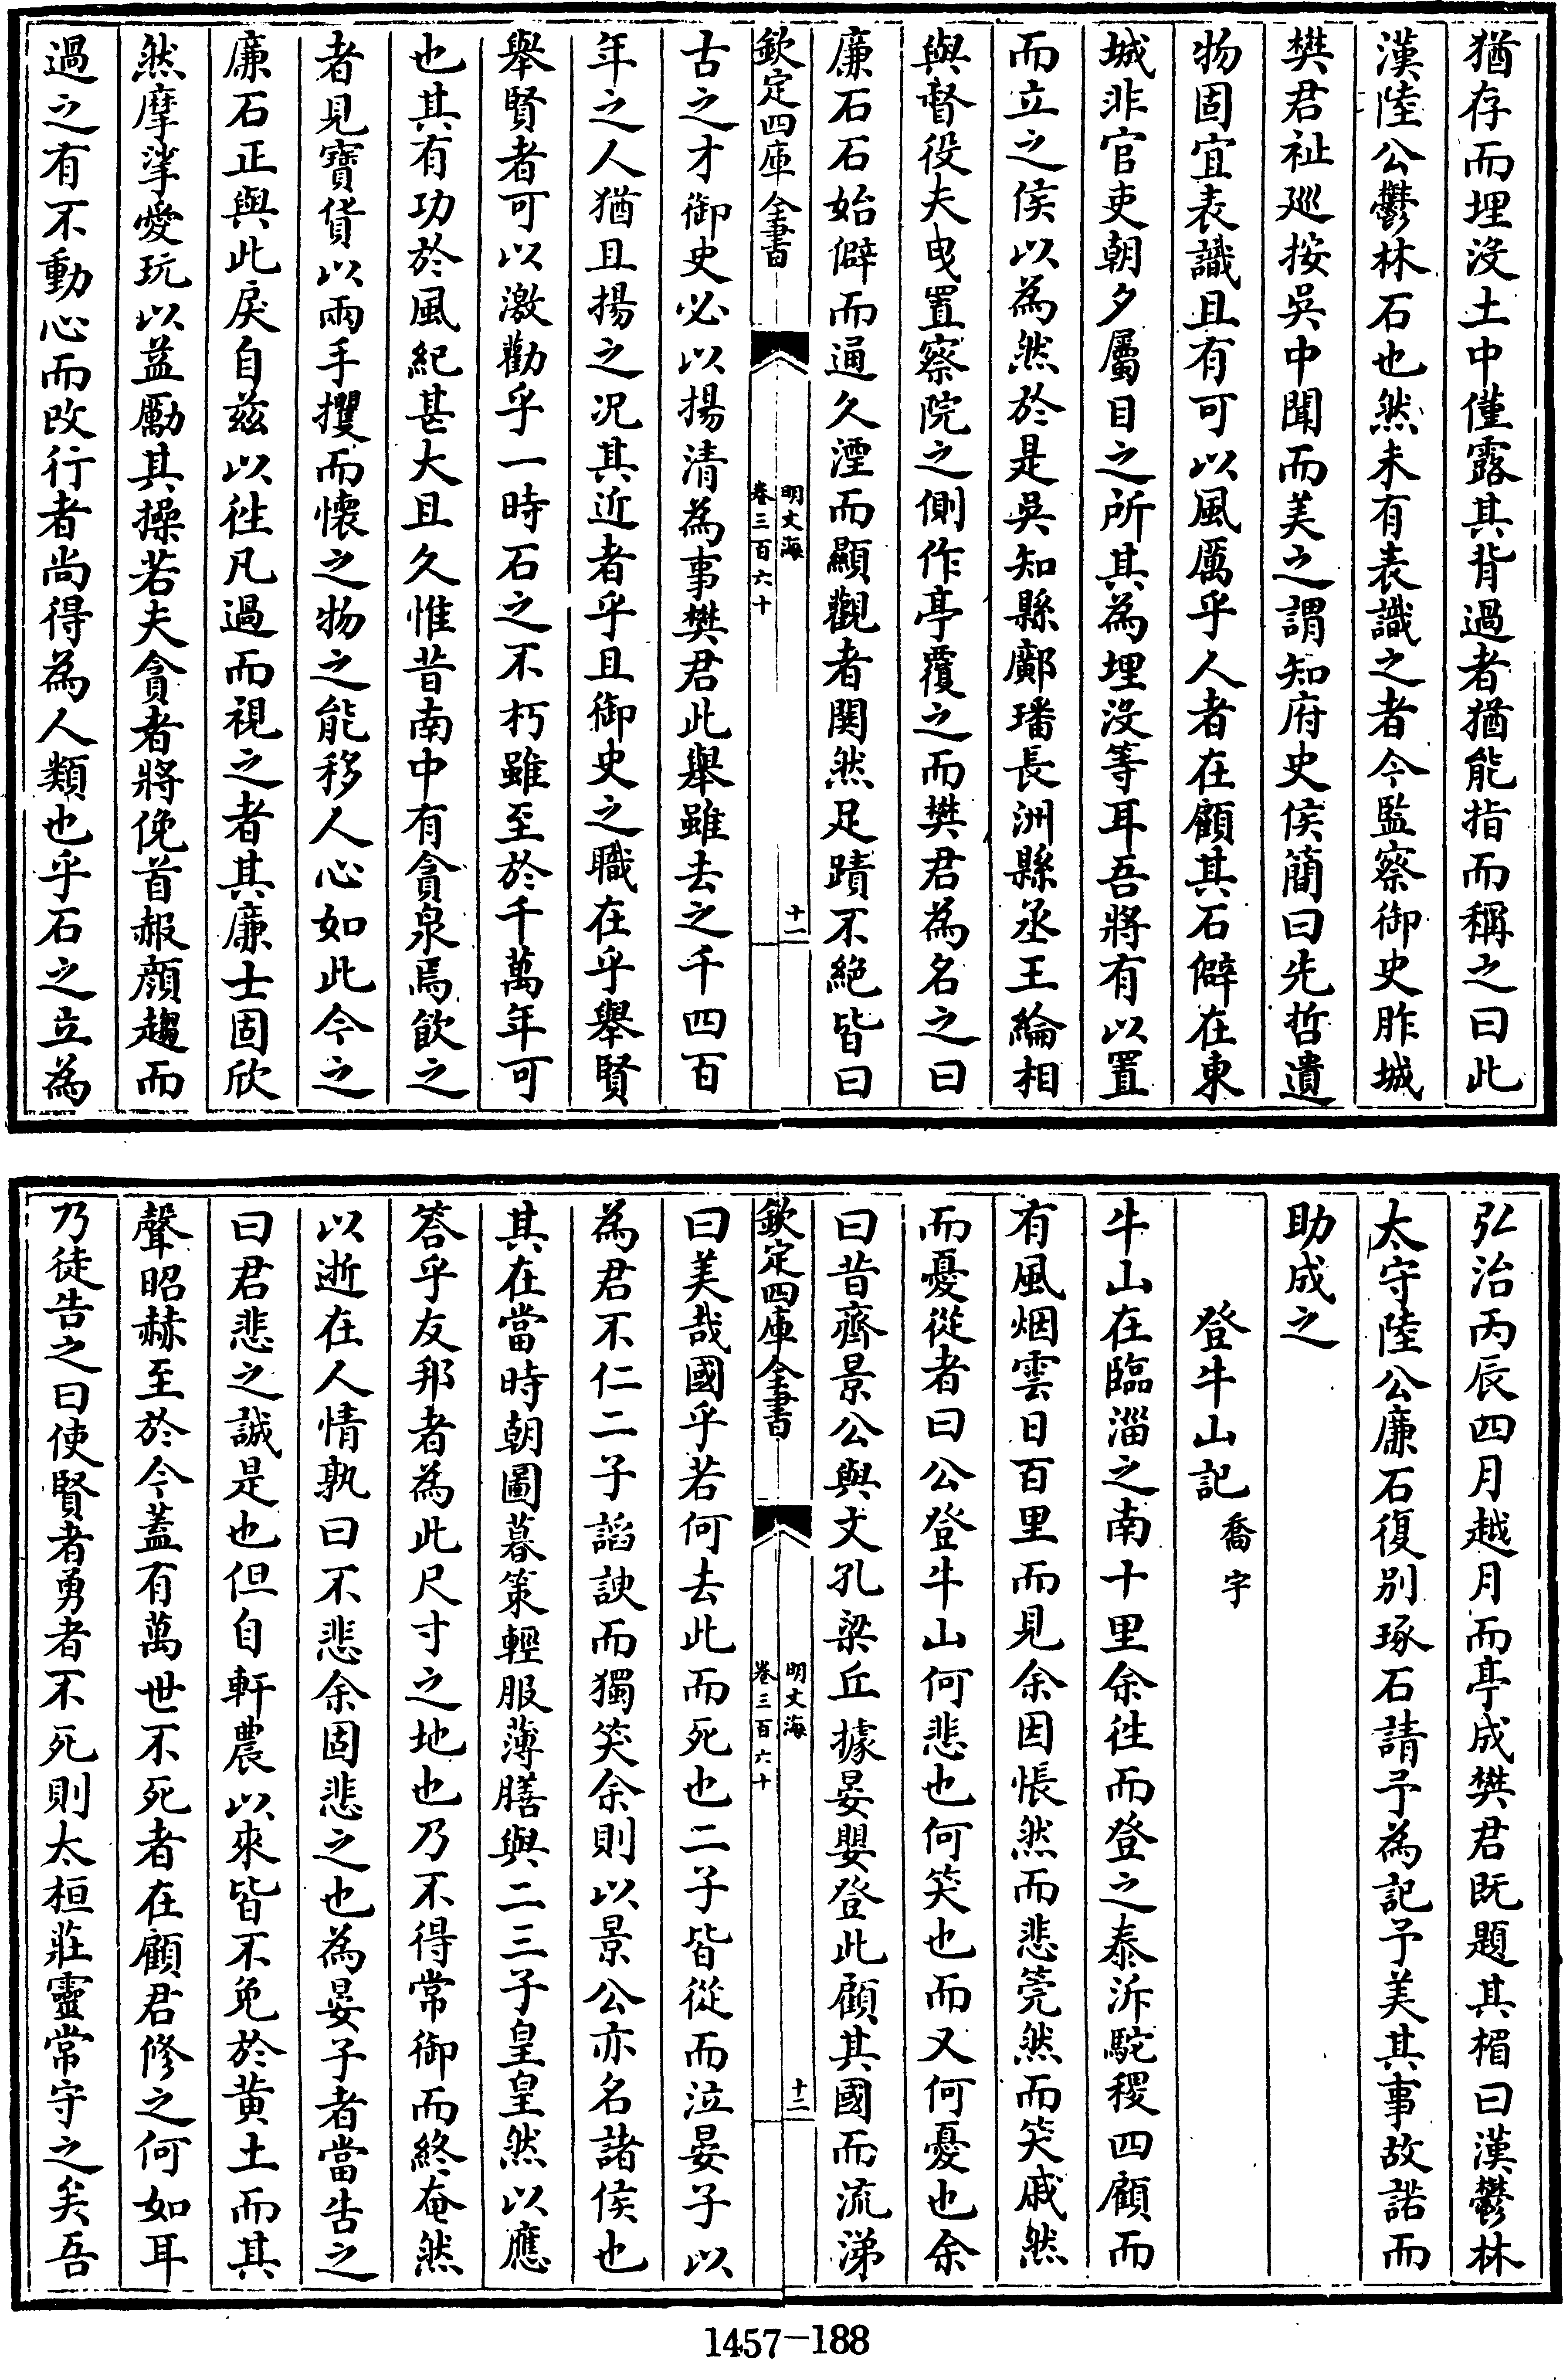 猶存而埋沒土中僅露其背過者猶能指而稱之曰此
漢陸公鬱林石也然未有表識之者今監察御史胙城
樊君祉廵按吳中聞而美之謂知府史侯簡曰先哲遺
物固宜表識且有可以風厲乎人者在顧其石僻在東
城非官吏朝夕屬目之所其為埋沒等耳吾將有以置
而立之侯以為然於是吳知縣鄺璠長洲縣丞王綸相
與督役夫曳置察院之側作亭覆之而樊君為名之曰
廉石石始僻而通久湮而顯觀者閧然足蹟不絶皆曰
欽定四庫全書
明文海
卷三百六十
十一
古之才御史必以揚清為事樊君此舉雖去之千四百
年之人猶且揚之况其近者乎且御史之職在乎舉賢
舉賢者可以激勸乎一時石之不朽雖至於千萬年可
也其有功於風紀甚大且久惟昔南中有貪泉焉飲之
者見寶貨以兩手攫而懷之物之能移人心如此今之
廉石正與此戾自兹以徃凡過而視之者其廉士固欣
然摩挲愛玩以益勵其操若夫貪者將俛首赧顔趨而
過之有不動心而改行者尚得為人類也乎石之立為
弘治丙辰四月越月而亭成樊君既題其楣曰漢鬱林
太守陸公廉石復别琢石請予為記予美其事故諾而
助成之
登牛山記 喬宇
牛山在臨淄之南十里余徃而登之泰泝駝稷四顧而
有風烟雲日百里而見余因悵然而悲莞然而笑戚然
而憂從者曰公登牛山何悲也何笑也而又何憂也余
曰昔齊景公與丈孔梁丘據晏嬰登此顧其國而流涕
欽定四庫全書
明文海
卷三百六十
十二
曰美哉國乎若何去此而死也二子皆從而泣晏子以
為君不仁二子謟諛而獨笑余則以景公亦名諸侯也
其在當時朝圖暮策輕服薄膳與二三子皇皇然以應
答乎友邦者為此尺寸之地也乃不得常御而終奄然
以逝在人情孰曰不悲余固悲之也為晏子者當告之
曰君悲之誠是也但自軒農以來皆不免於黄土而其
聲昭赫至於今蓋有萬世不死者在顧君修之何如耳
乃徒告之曰使賢者勇者不死則太桓莊靈常守之矣吾
1457-188